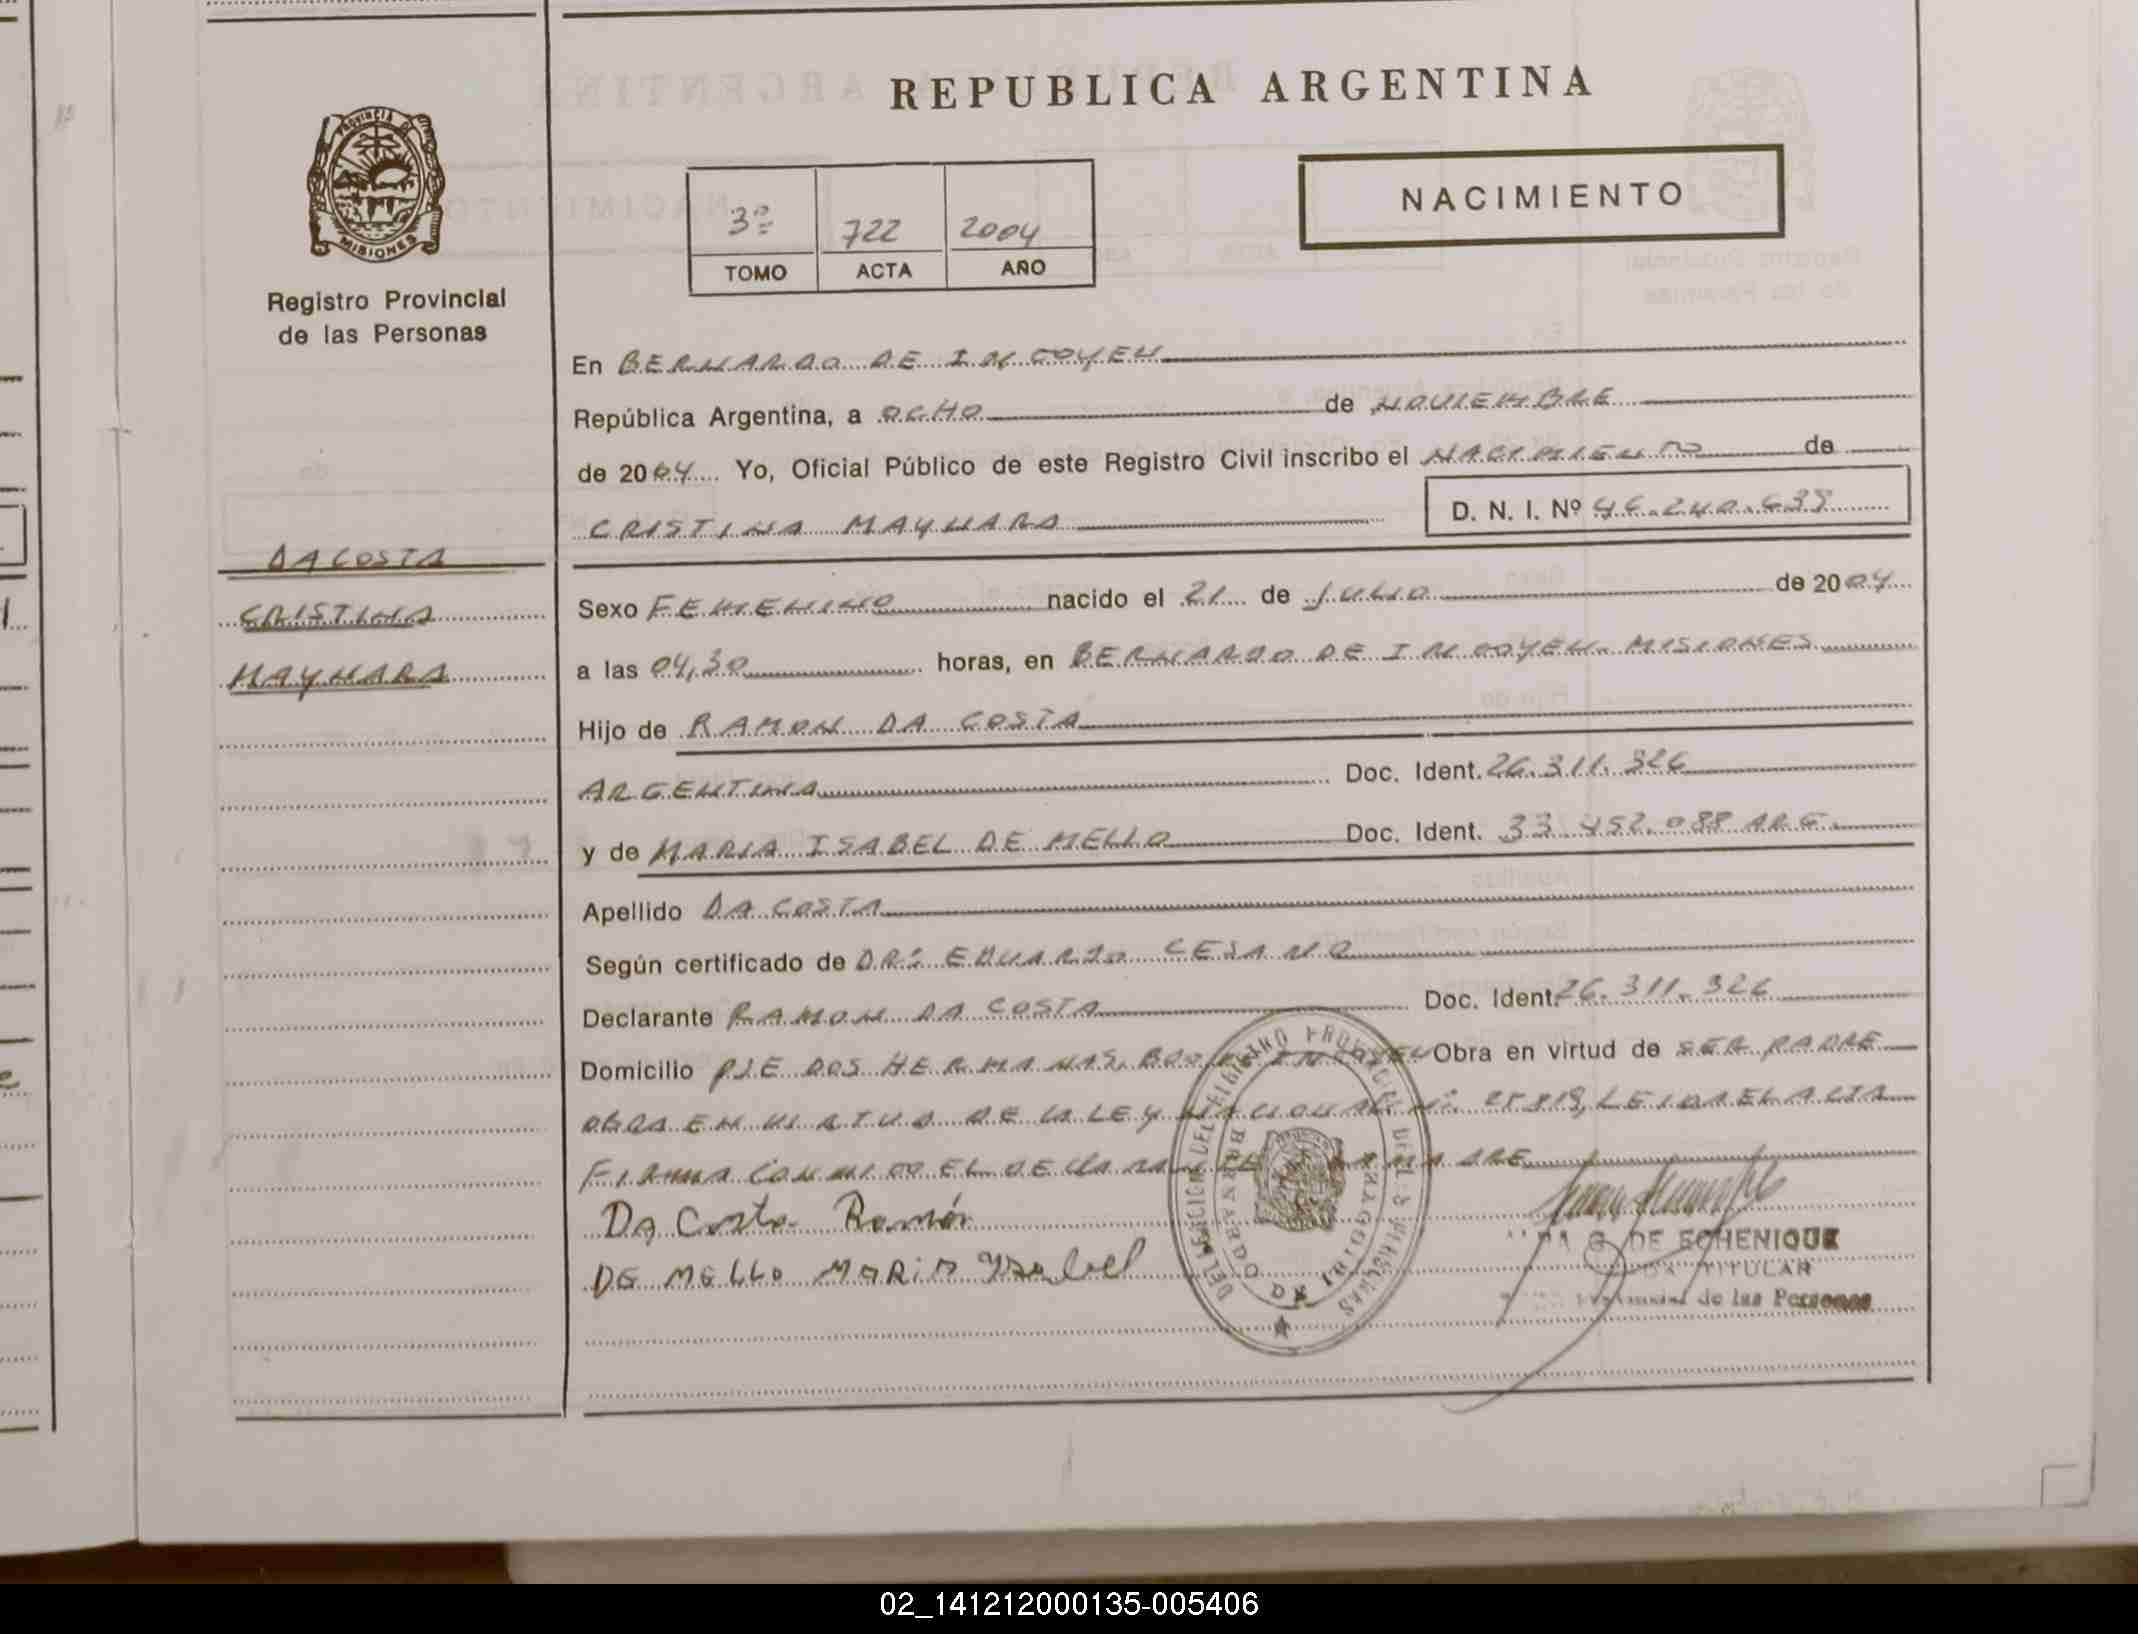 REPUBLICA ARGENTINA
PROVINCIA DE
MISIONES
Registro Provincial
de las Personas
3º 722 2004
TOMO ACTA AÑO
NACIMIENTO
En BERNARDO DE IRIGOYEN
República Argentina, a OCHO de NOVIEMBRE
de 2004 Yo, Oficial Público de este Registro Civil inscribo el NACIMIENTO de
CRISTINA MAYNARA D. N. I. Nº 46.240.639
DA COSTA
CRISTINA
MAYNARA
Sexo FEMENINO nacido el 21 de JULIO de 2004
a las 04,30 horas, en BERNARDO DE IRIGOYEN. MISIONES
Hijo de RAMON DA COSTA
ARGENTINA Doc. Ident. 26.311.326
y de MARIA ISABEL DE MELLO Doc. Ident. 33.452.088 ARG.
Apellido DA COSTA
Según certificado de DR: EDUARDO CESANO
Declarante RAMON DA COSTA Doc. Ident. 26.311.326
Domicilio PJE DOS HERMANAS. Obra en virtud de SER PADRE
OBRA EN VIRTUD DE LA LEY NACIONAL Nº. 25819, LEIDA EL ACTA
FIRMA CONMIGO EL DECLARANTE LA MADRE
Da Costa Ramón
DE MELLO MARIA Ysabel
DE ECHENIQUE
TITULAR
de las Personas
02_141212000135-005406